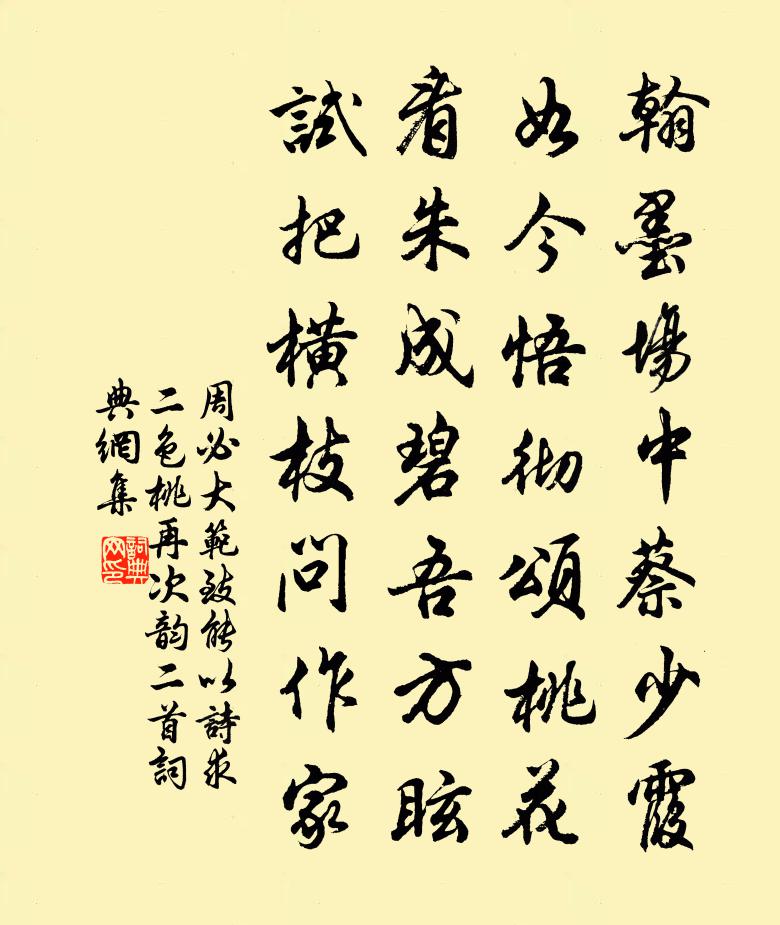 翰墨場中蔡少霞
如今悟徹頌桃花
看朱成碧吾方眩
試把橫枝問作家
周必大範致能以詩求
二色桃再次韵二首詞
典網集
詞典網印